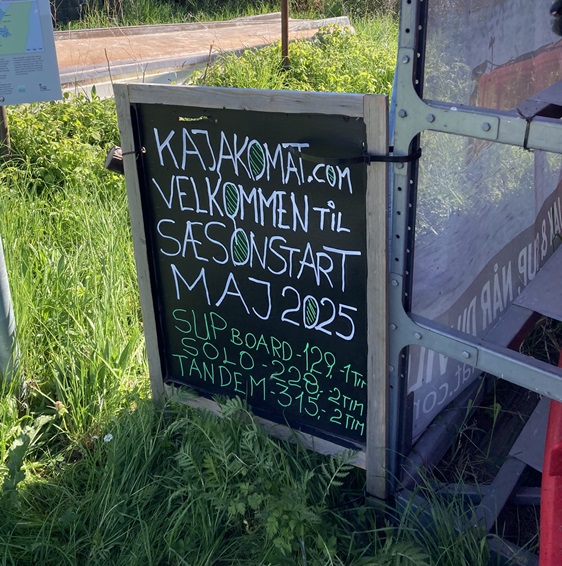 KAJAKOMAT.COM
VELKOMMEN TIL
SÆSONSTART
MAJ 2025
SUP BOARD-129,-1 TIM
SOLO-228,-2TIM
TANDEM-315,-2TIM
& UP, NÅR DU